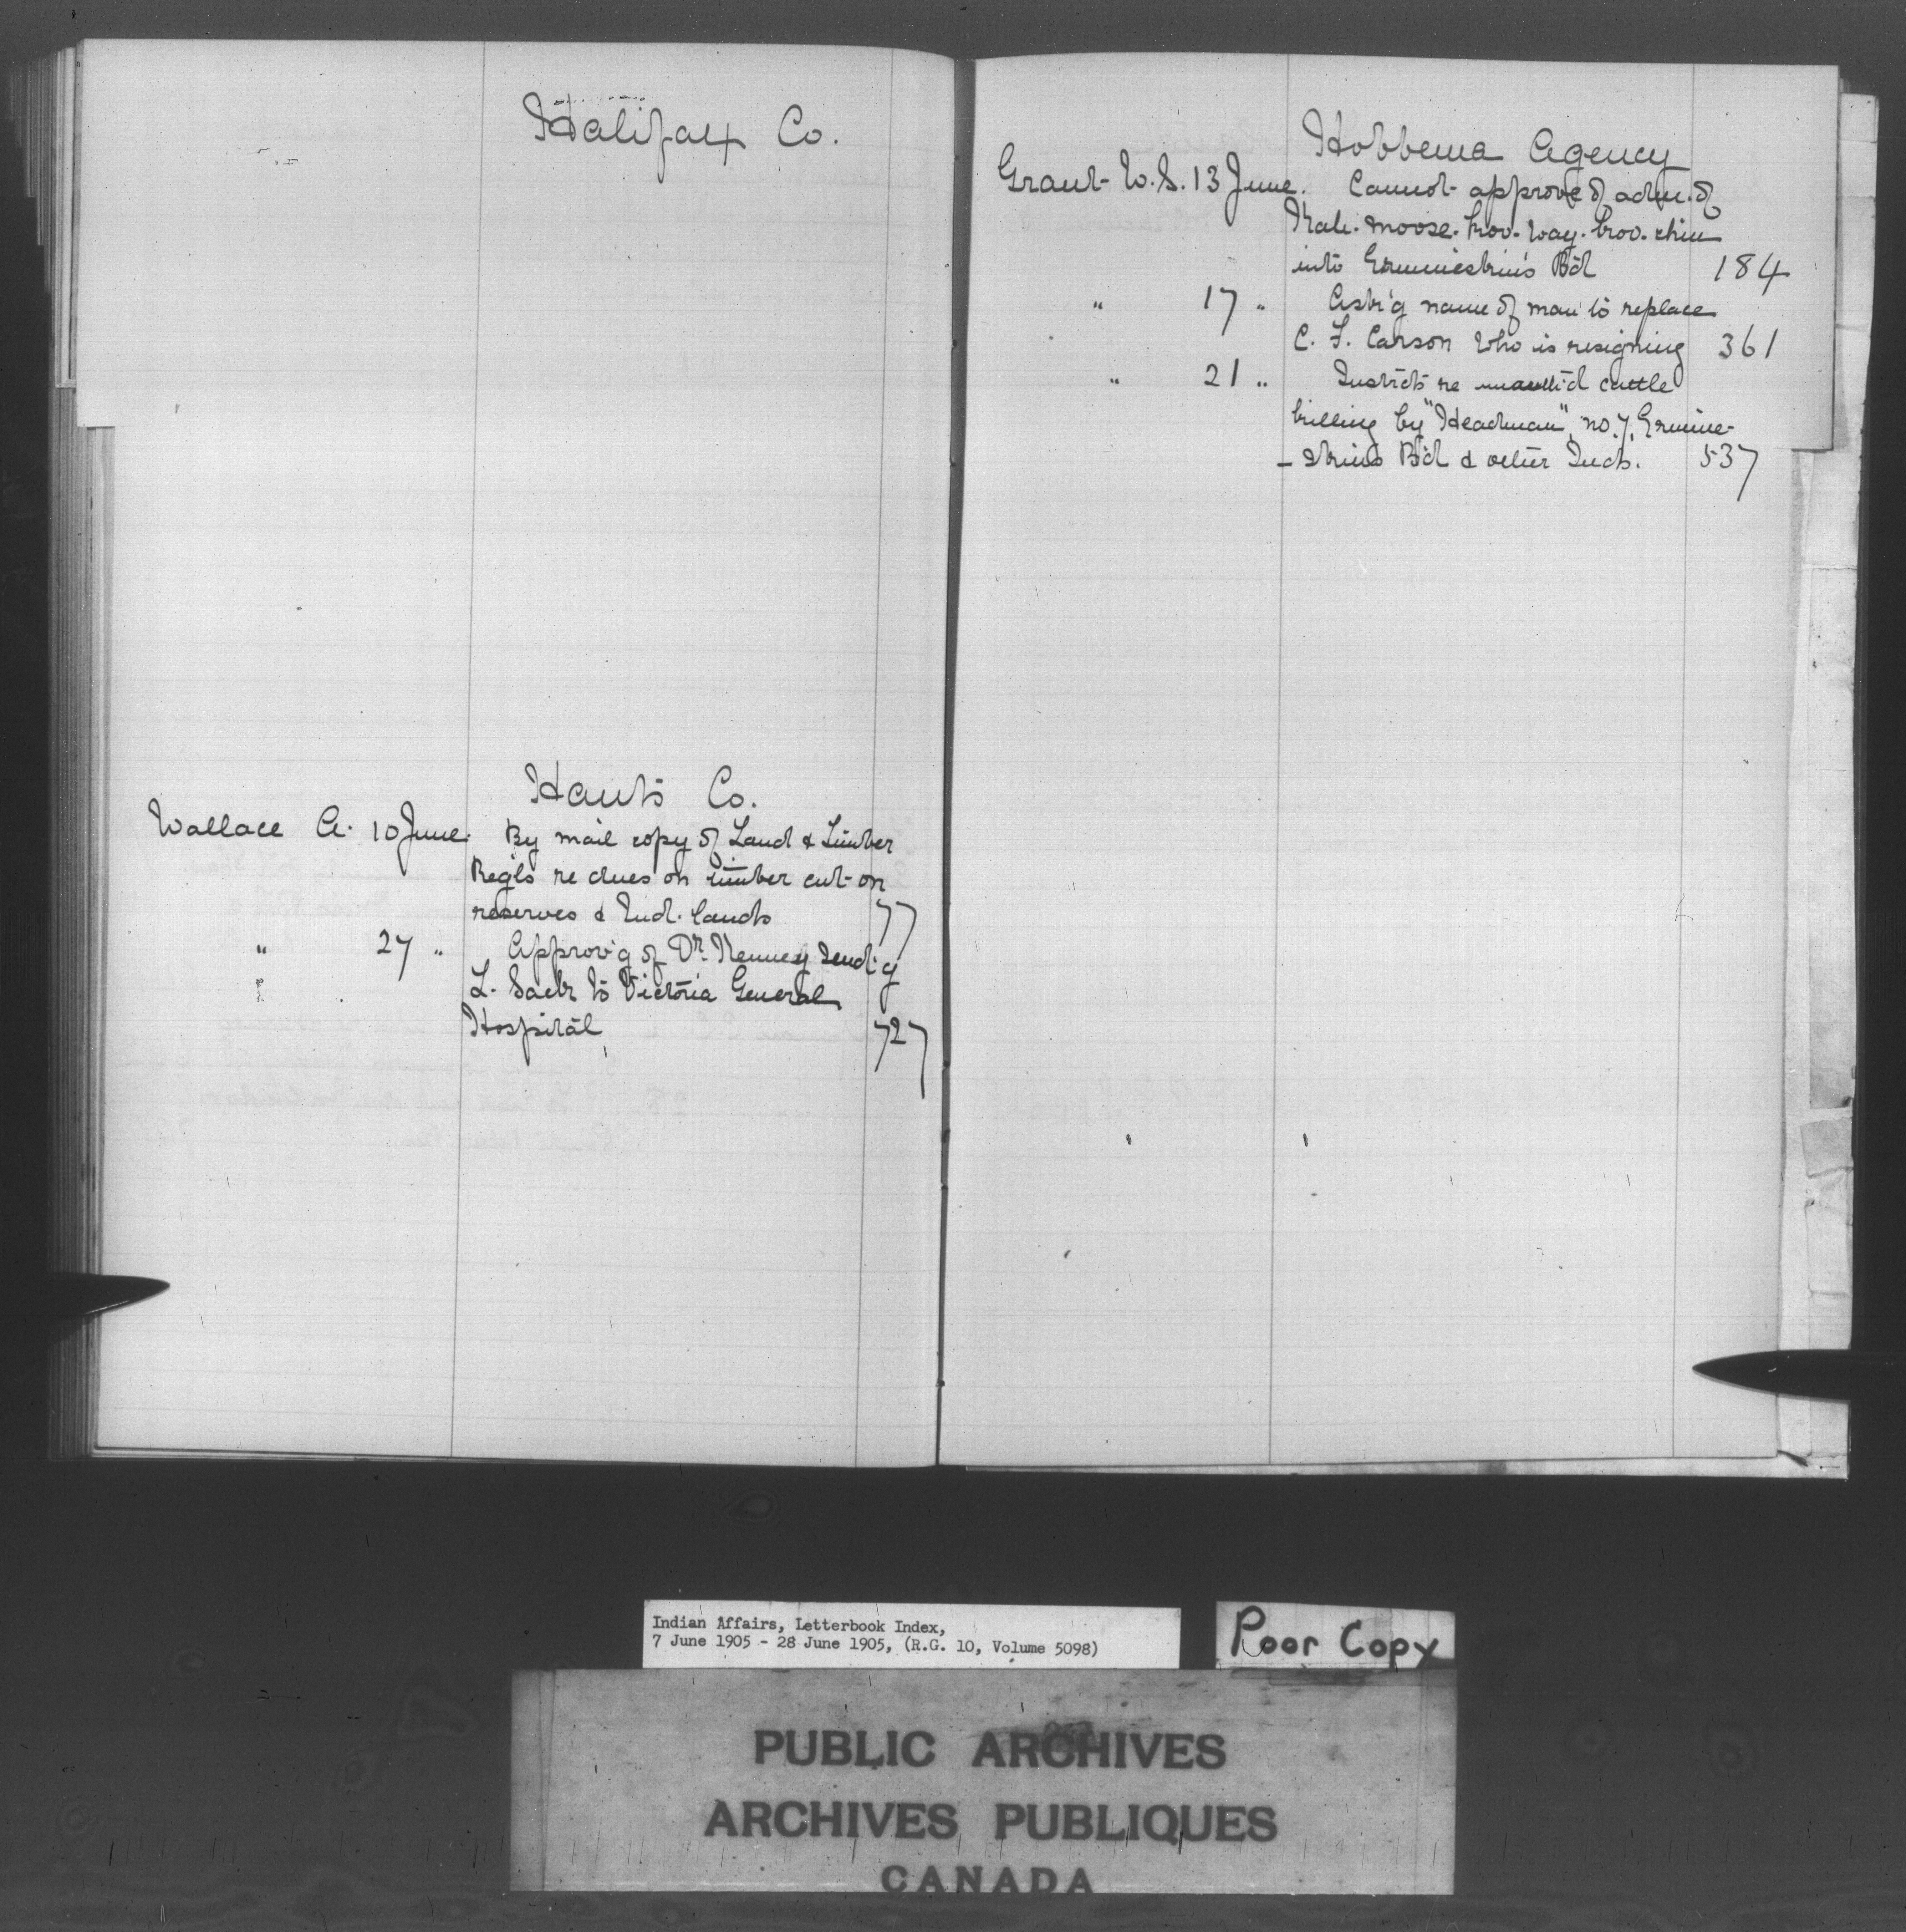 Halifax Co.
Hants Co.
Wallace A. 10 June. By mail copy of Land & Timber
Reg'ls re dues on timber cut on
reserves & Ind. lands 77
" 27 " Approv'g of Dr. Kenney send'g
L. Sack to Victoria General
Hospital 727
Hobbema Agency
Grant W.S. 13 June. Cannot approve of adm. of
moose. way.
into Ermineskin's B'd 184
" 17 " Ask'g name of man to replace
C. F. Carson who is resigning 361
" 21 " Instr'cts re cattle
killing by "Headman", no. 7, Ermine-
- skins B'd & other Inds. 537
Indian Affairs, Letterbook Index,
7 June 1905 - 28 June 1905, (R.G. 10, Volume 5098)
Poor Copy
PUBLIC ARCHIVES
ARCHIVES PUBLIQUES
CANADA